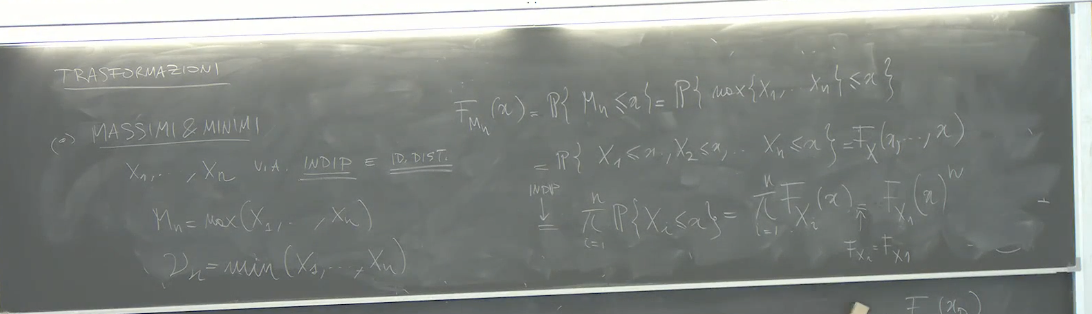 TRASFORMAZIONI
(o) MASSIMI & MINIMI
X₁, ..., Xₙ V.A. INDIP E ID. DIST.
Mₙ = max(X₁, ..., Xₙ)
νₙ = min(X₁, ..., Xₙ)
F_{Mₙ}(x) = ℙ{ Mₙ ≤ x } = ℙ{ max{X₁, ... Xₙ} ≤ x }
= ℙ{ X₁ ≤ x, X₂ ≤ x, ... Xₙ ≤ x } = F_X(x, ..., x)
INDIP
↓
= ∏_{i=1}^{n} ℙ{Xᵢ ≤ x} = ∏_{i=1}^{n} F_{Xᵢ}(x) = F_{X₁}(x)ⁿ
F_{Xᵢ} = F_{X₁}